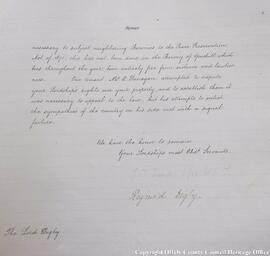 necessary to subject neighbouring Baronies to the Peace Preservation
Act of 1870, this has not been done in the Barony of Geashill which
has throughout the year been entirely free from outrage and lawless-
ness. One tenant, Mr. attempted to dispute
your Lordship's rights over your property, and to establish them it
was necessary to appeal to the law, but his attempts to enlist
the sympathies of the country on his side met with a signal
failure.
We have the honor to remain
Your Lordship's most Obdt Servants
Reginald Digby.
The Lord Digby
Copyright Offaly County Council Heritage Office